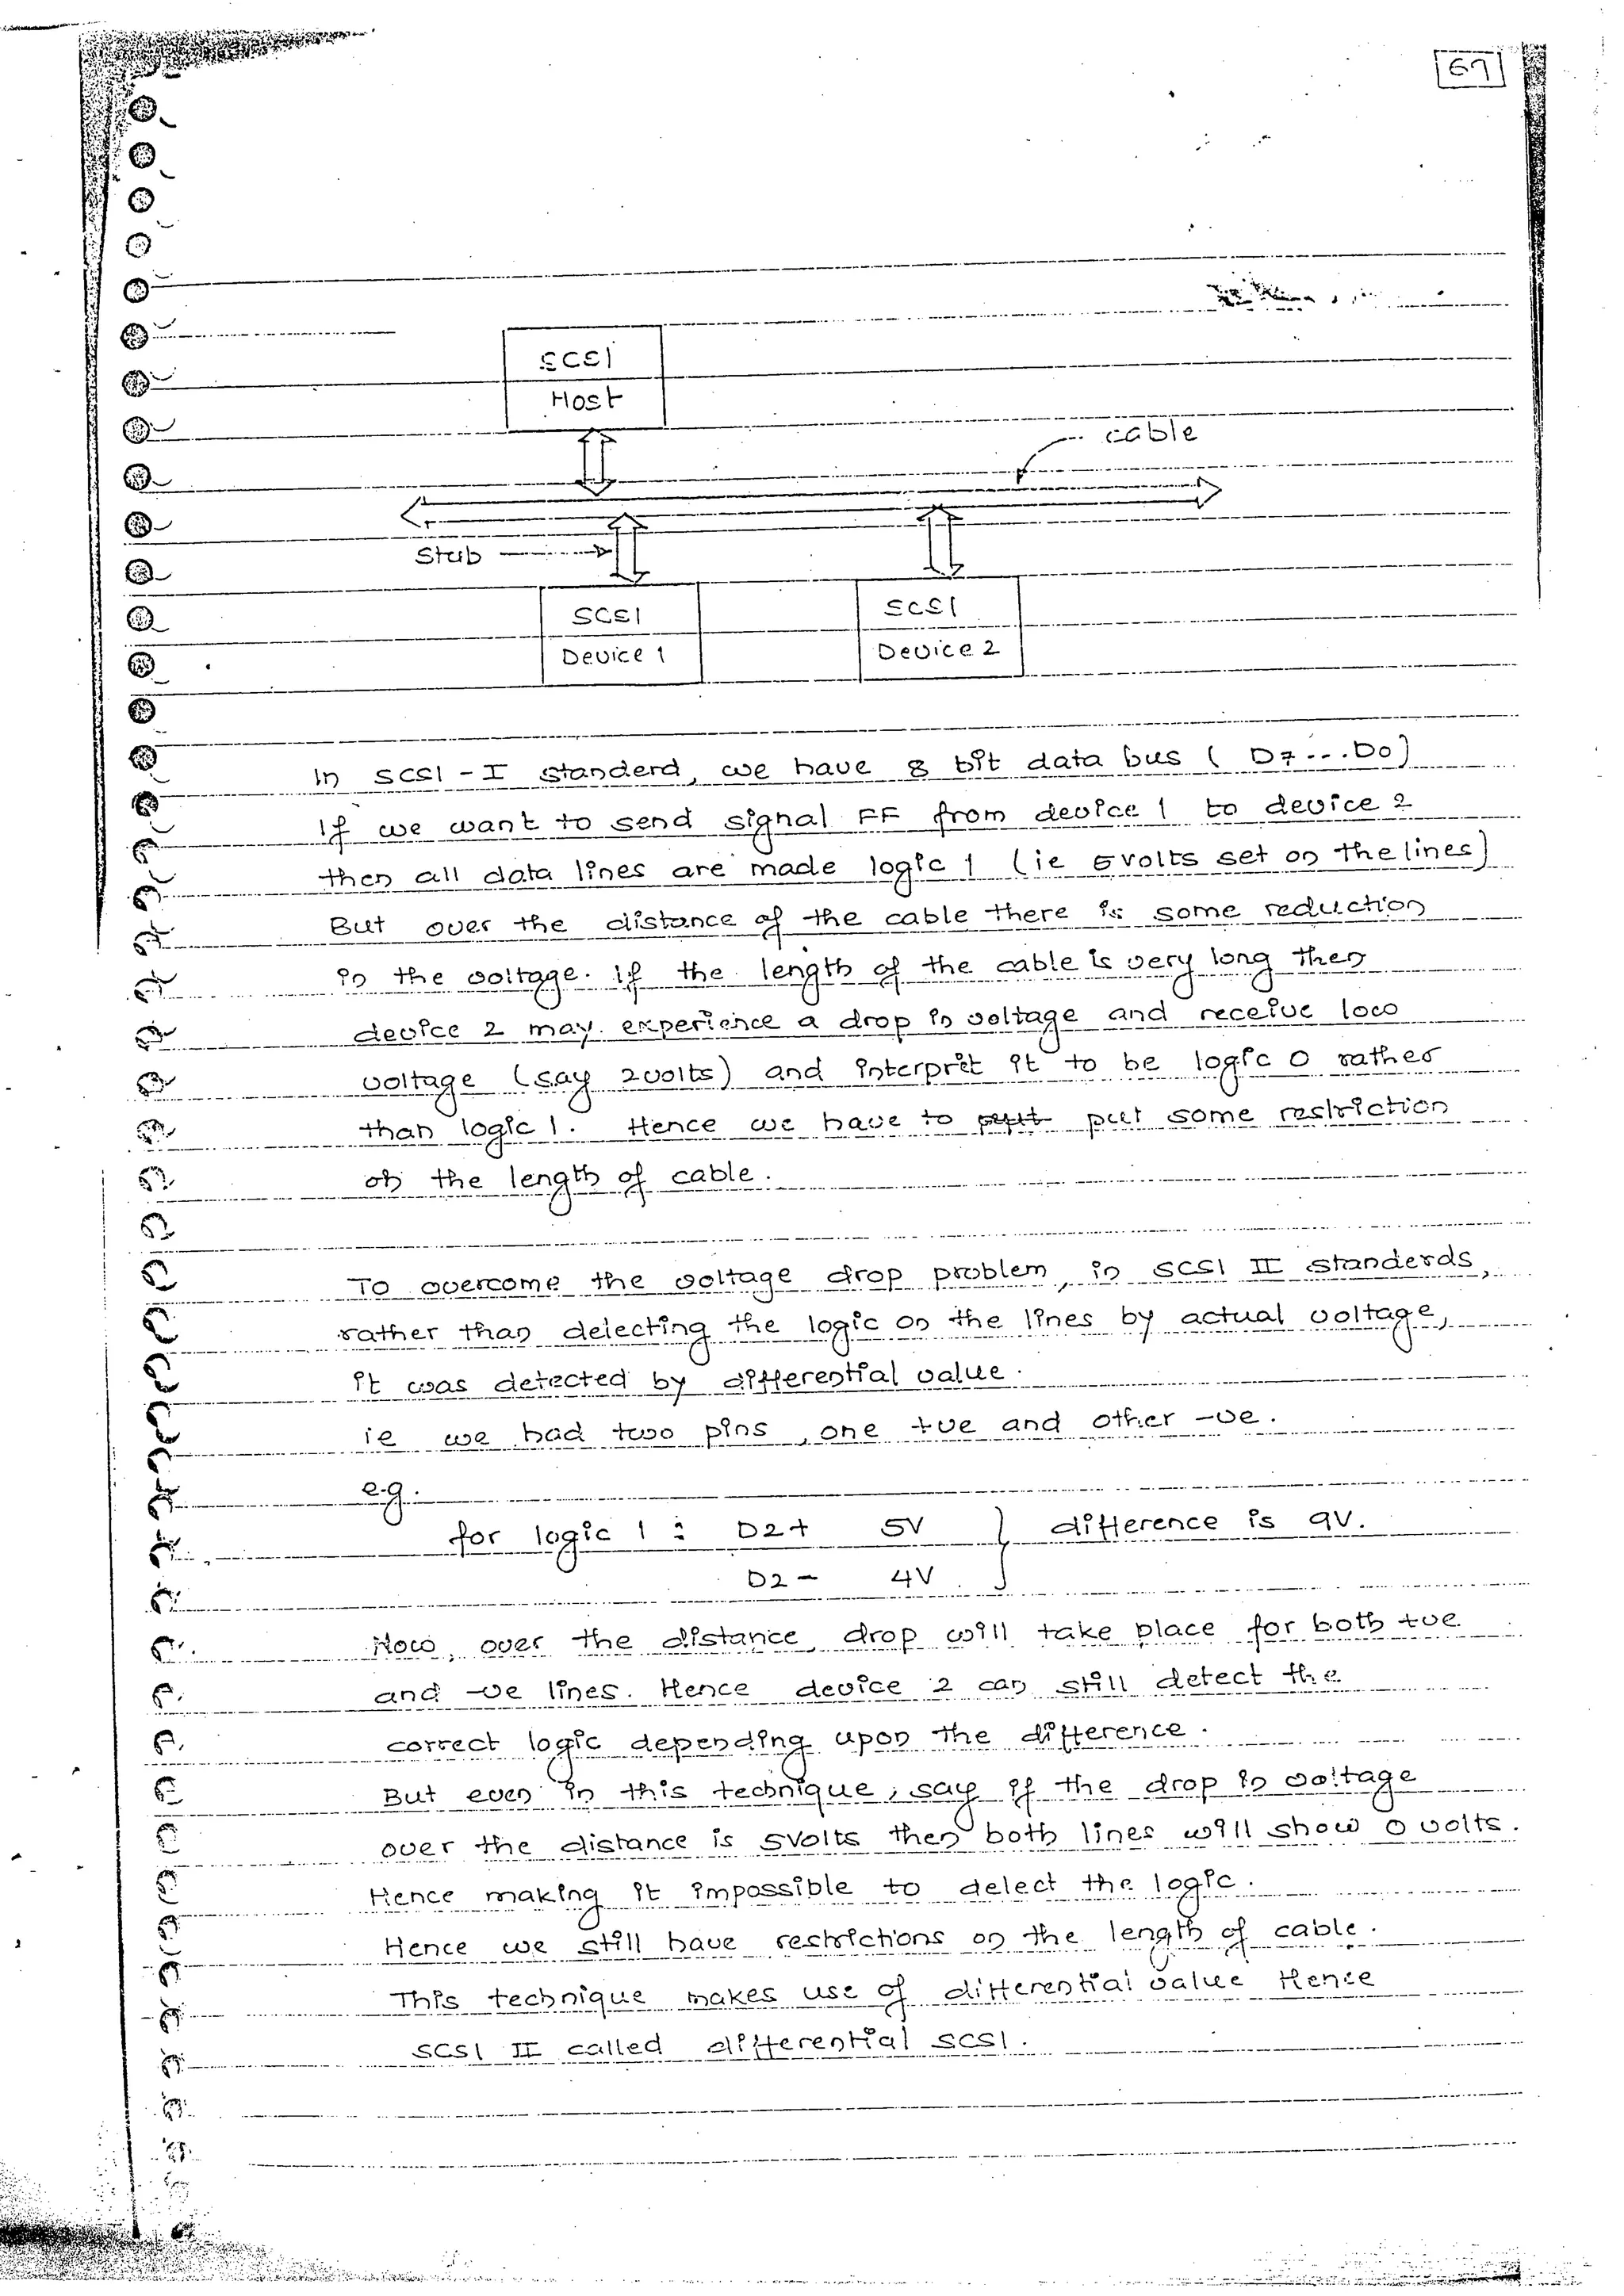 67
SCSI
Host
cable
Stub
SCSI
Device 1
SCSI
Device 2
In SCSI - I standerd, we have 8 bit data bus ( D7 ... D0)
If we want to send signal FF from device 1 to device 2
then all data lines are made logic 1 (ie 5volts set on the lines)
But over the distance of the cable there is some reduction
in the voltage. if the length of the cable is very long then
device 2 may experience a drop in voltage and receive low
voltage (say 2volts) and interpret it to be logic 0 rather
than logic 1. Hence we have to put some restriction
on the length of cable.
To overcome the voltage drop problem, in SCSI II standerds,
rather than detecting the logic on the lines by actual voltage,
it was detected by differential value.
ie we had two pins, one +ve and other -ve.
e.g.
for logic 1 : D2+ 5V } difference is 9V.
D2- 4V
Now, over the distance drop will take place for both +ve
and -ve lines. Hence device 2 can still detect the
correct logic depending upon the difference.
But even in this technique, say if the drop in voltage
over the distance is 5volts then both lines will show 0 volts.
Hence making it impossible to detect the logic.
Hence we still have restrictions on the length of cable.
This technique makes use of differential value Hence
SCSI II called differential SCSI.